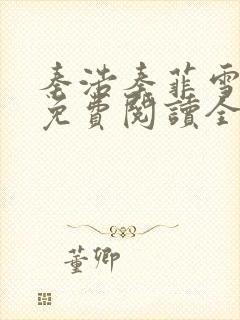 秦浩秦菲雪
免費閱讀全
董卿